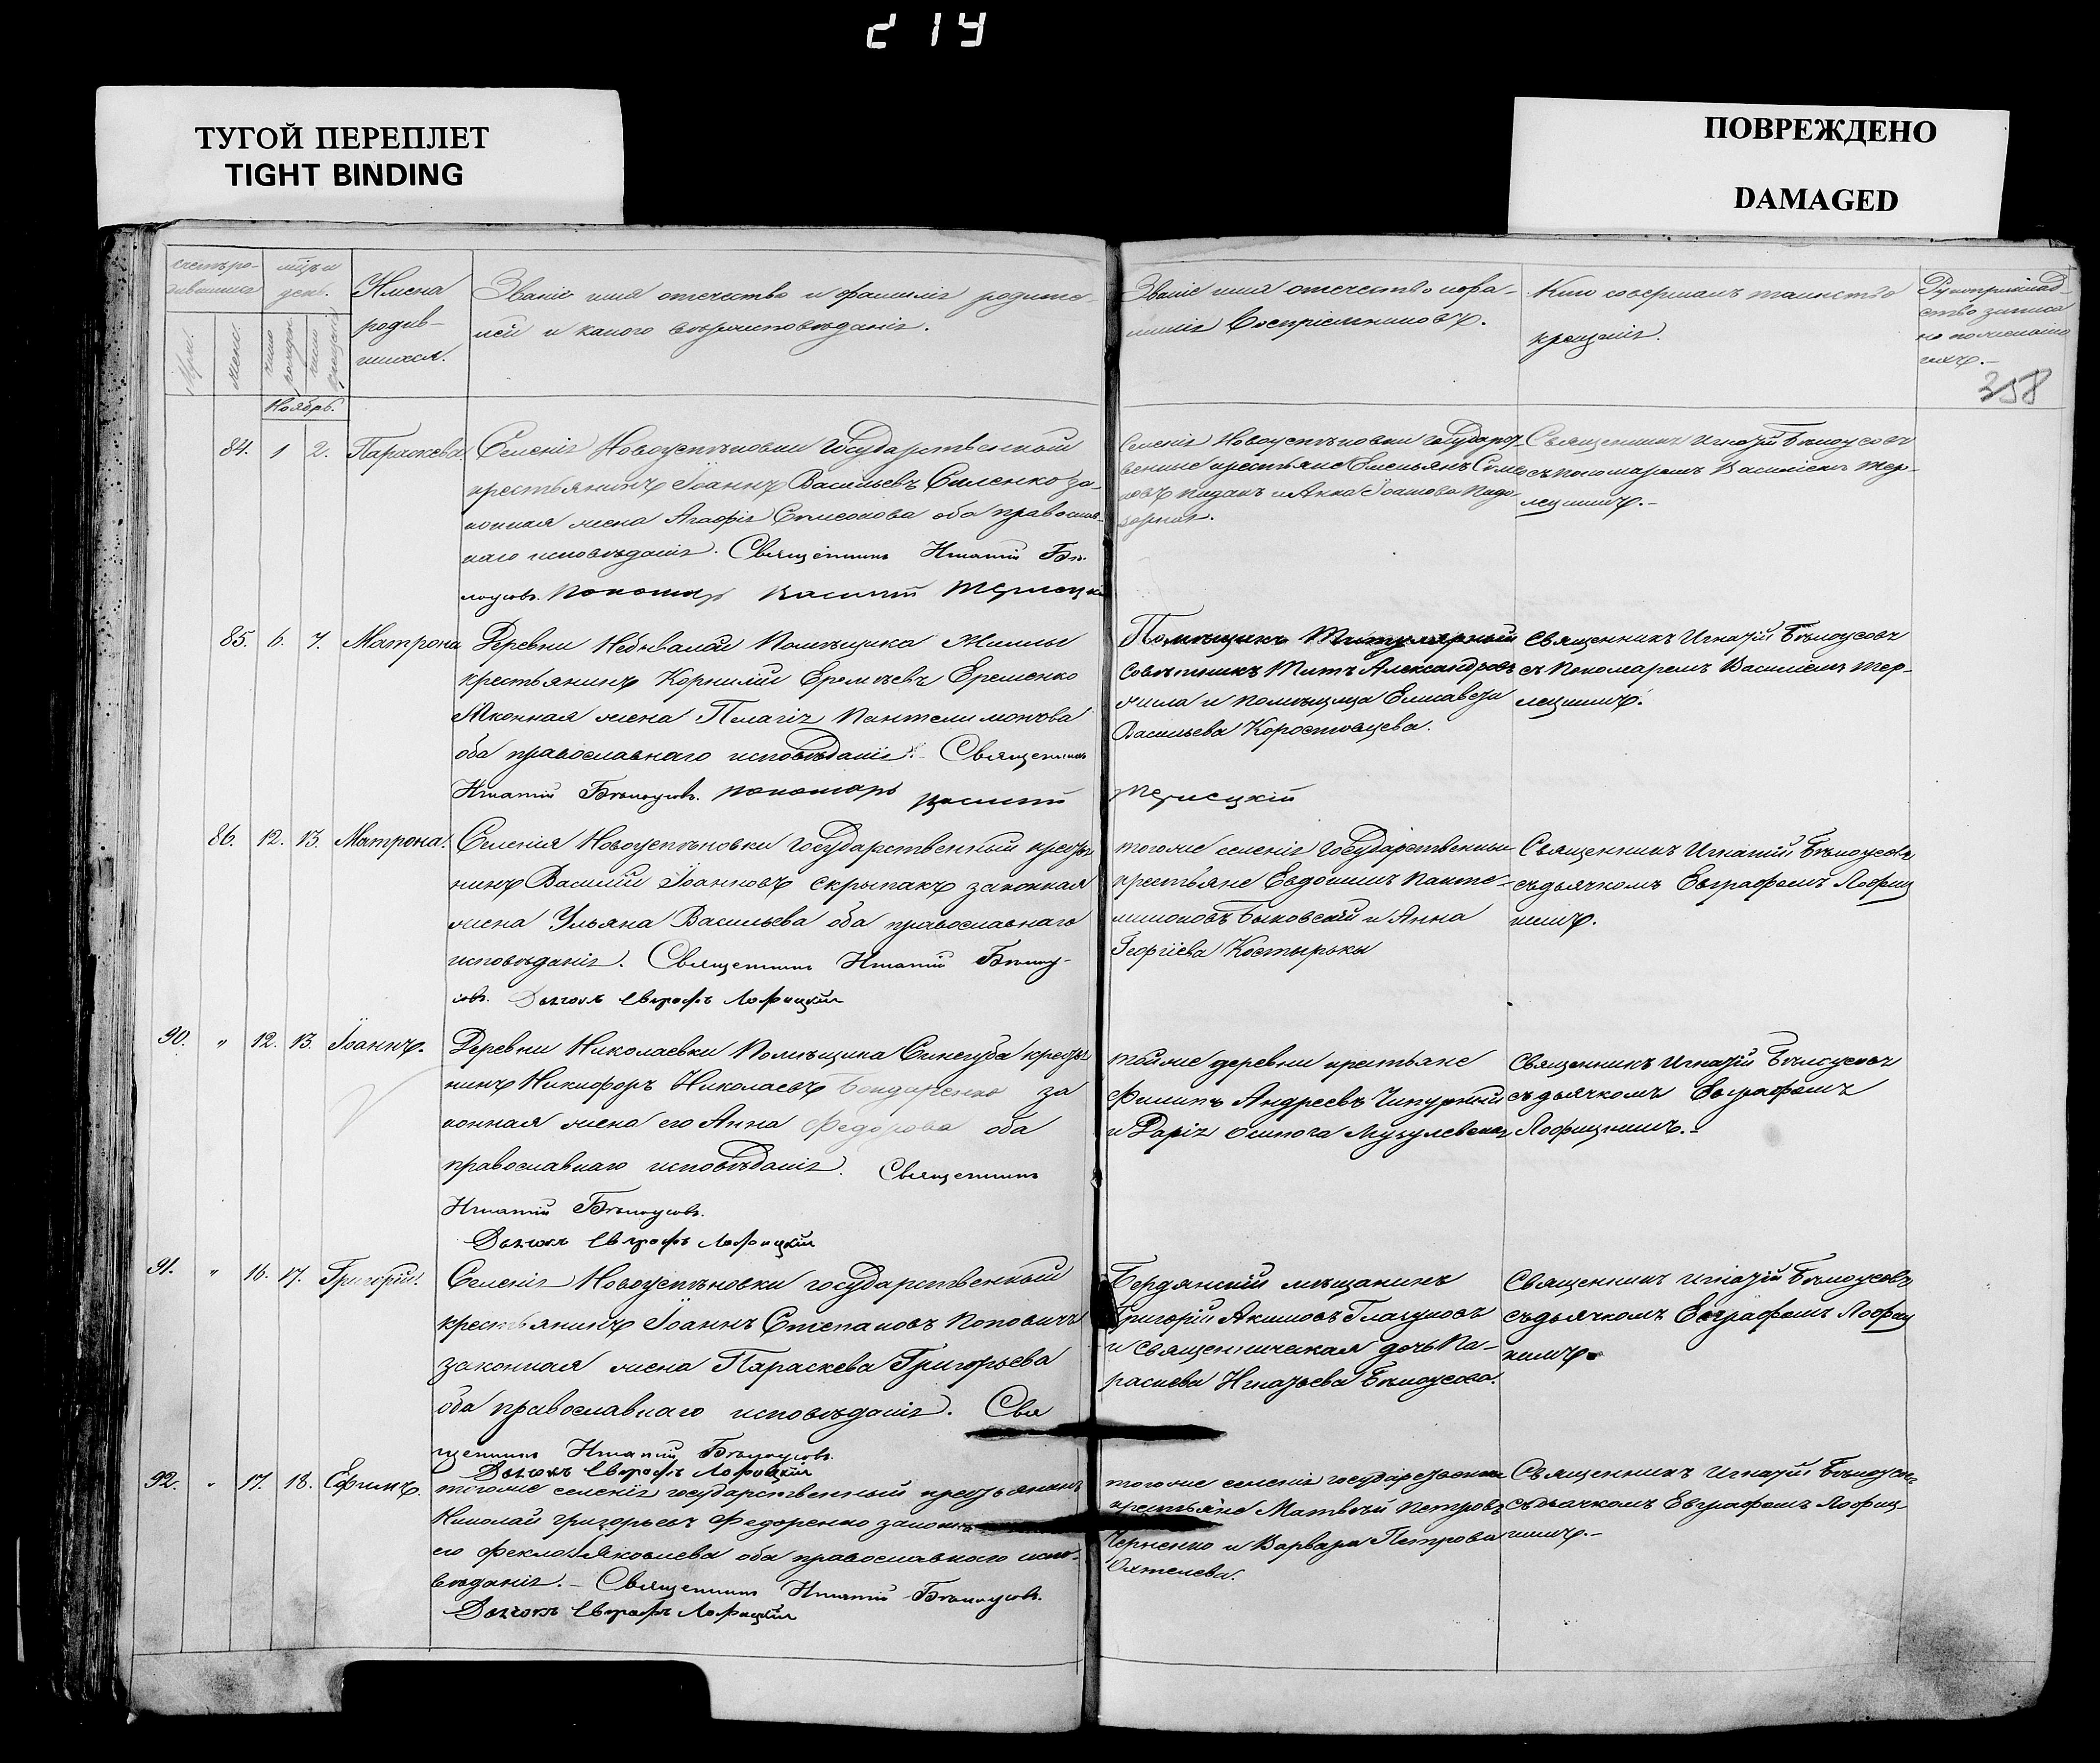 219
ТУГОЙ ПЕРЕПЛЕТ
TIGHT BINDING
ПОВРЕЖДЕНО
DAMAGED
Счетъ ро-
мѣц. и
день.
Муж.
женс.
число рожден.
число крещенія
Имена
родив-
шихся.
Званіе имя отечество и фамилія родите-
лей и какого вѣроисповѣданія.
Званіе имя отечество и фа-
милія Воспріемниковъ.
Кто совершалъ таинство
крещенія.
Рукоприклад-
ство записа
по желанію
358
Ноябрь.
84. 1 2. Параскева
Селенія Новоуспѣновки Государственный
крестьянинъ Іоаннъ Васильевъ Силенко за-
конная жена Агафія Симеонова оба православ-
наго исповѣданія. Священникъ Игнатій Бѣ-
лоусовъ. Пономарь Василій Терлецкій
Селенія Новоуспѣновки Государст-
венные крестьяне Емельянъ
и Анна Іоаннова
Священникъ Игнатій Бѣлоусовъ
съ пономаремъ Василіемъ Тер-
лецкимъ.
85. 6. 7. Матрона
Деревни Небывалой Помѣщика Жилы
крестьянинъ Корнилій Еремѣевъ Еременко
законная жена Пелагія Пантелимонова
оба православнаго исповѣданія. Священникъ
Игнатій Бѣлоусовъ. пономарь Василій
Терлецкій
Помѣщикъ Титулярный
Совѣтникъ Титъ Александровъ
Жила и помѣщица Елисавета
Васильева Коростовцева.
Священникъ Игнатій Бѣлоусовъ
съ Пономаремъ Василіемъ Тер-
лецкимъ.
86. 12. 13. Матрона.
Селенія Новоуспѣновки государственный кресть
нинъ Василій Іоанновъ Скрыпакъ законная
жена Ульяна Васильева оба православнаго
исповѣданія. Священникъ Игнатій Бѣлоу-
совъ. Дьячокъ Евграфъ Лофицкій
тогоже селенія Государственные
крестьяне Евдокимъ Панте-
лимоновъ Быковскій и Анна
Георгіева Костырька
Священникъ Игнатій Бѣлоусовъ
съ дьячкомъ Евграфомъ Лофиц
кимъ.
90. " 12. 13. Іоаннъ.
Деревни Николаевки Помѣщика Синегуба кресть
нинъ Никифоръ Николаевъ Бондаренко за
конная жена его Анна Федорова оба
православнаго исповѣданія. Священникъ
Игнатій Бѣлоусовъ.
Дьячокъ Евграфъ Лофицкій
тойже деревни крестьяне
Филипъ Андреевъ Чипурный
и Дарія
Священникъ Игнатій Бѣлоусовъ
съ дьячкомъ Евграфомъ
Лофицкимъ.
91. " 16. 17. Григорій.
Селенія Новоуспѣновки государственный
крестьянинъ Іоаннъ Степановъ Поповичъ
законная жена Параскева Григорьева
оба православнаго исповѣданія. Свя
щенникъ Игнатій Бѣлоусовъ.
Дьячокъ Евграфъ Лофицкій
Бердянскій мѣщанинъ
Григорій Акимовъ Глазуновъ
и священническая дочь Па-
раскева Игнатьева Бѣлоусова.
Священникъ Игнатій Бѣлоусовъ
съ дьячкомъ Евграфомъ Лофиц
кимъ.
92. " 17. 18. Ефимъ.
тогоже селенія государственный крестьянинъ
Николай Григорьевъ Федоренко законн
его Фекла Яковлева оба православнаго испо-
вѣданія. Священникъ Игнатій Бѣлоусовъ.
Дьячокъ Евграфъ Лофицкій
тогоже селенія государственные
крестьяне Матвѣй Петровъ
Черненко и Варвара Петрова
Священникъ Игнатій Бѣлоусовъ
съ дьячкомъ Евграфомъ Лофиц
кимъ.